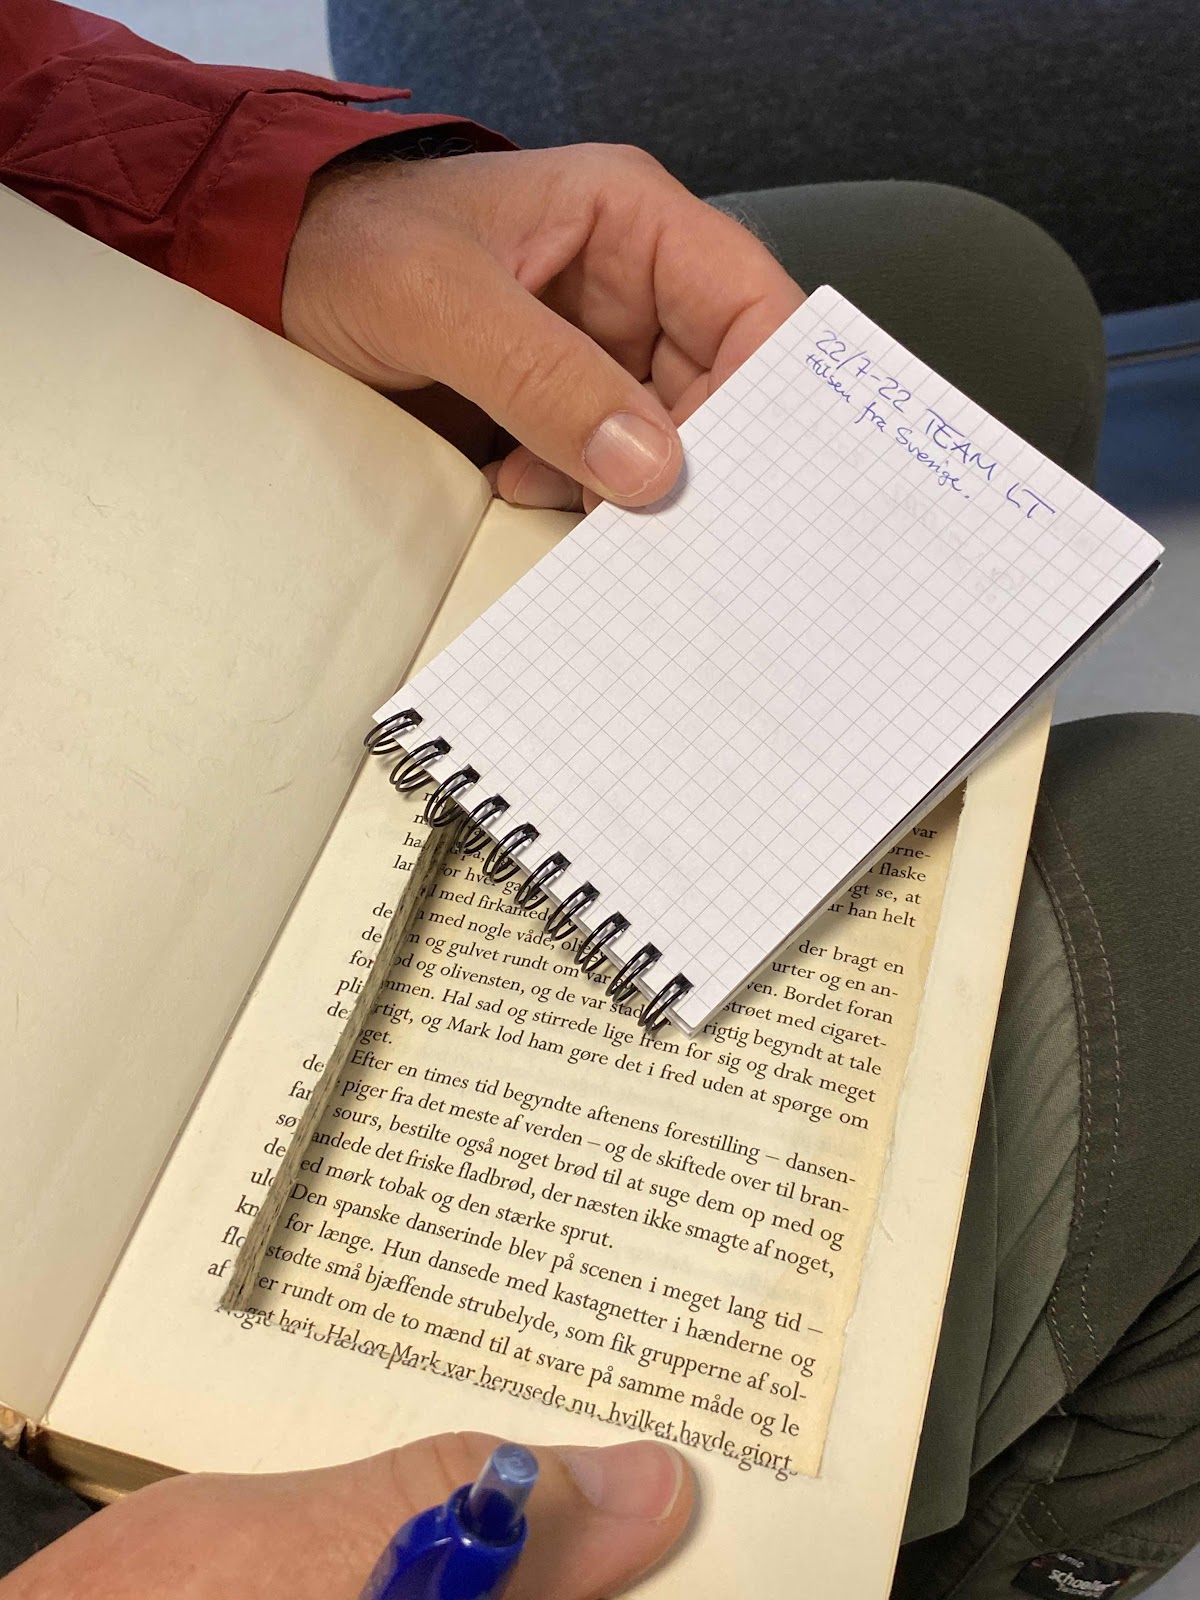 22/7-22 TEAM LT
Hilsen fra Sverige.
var
flaske
gt se, at
han helt
med firkantede
der bragt en
med nogle våde,
urter og en an-
og gulvet rundt om var
Bordet foran
og olivensten, og de var
strøet med cigaret-
Hal sad og stirrede lige frem for sig og drak meget
rigtig begyndt at tale
og Mark lod ham gøre det i fred uden at spørge om
Efter en times tid begyndte aftenens forestilling – dansen-
piger fra det meste af verden – og de skiftede over til bran-
sours, bestilte også noget brød til at suge dem op med og
andede det friske fladbrød, der næsten ikke smagte af noget,
ed mørk tobak og den stærke sprut.
Den spanske danserinde blev på scenen i meget lang tid –
for længe. Hun dansede med kastagnetter i hænderne og
stødte små bjæffende strubelyde, som fik grupperne af sol-
er rundt om de to mænd til at svare på samme måde og le
højt. Hal og Mark var berusede nu, hvilket havde gjort
schoeller